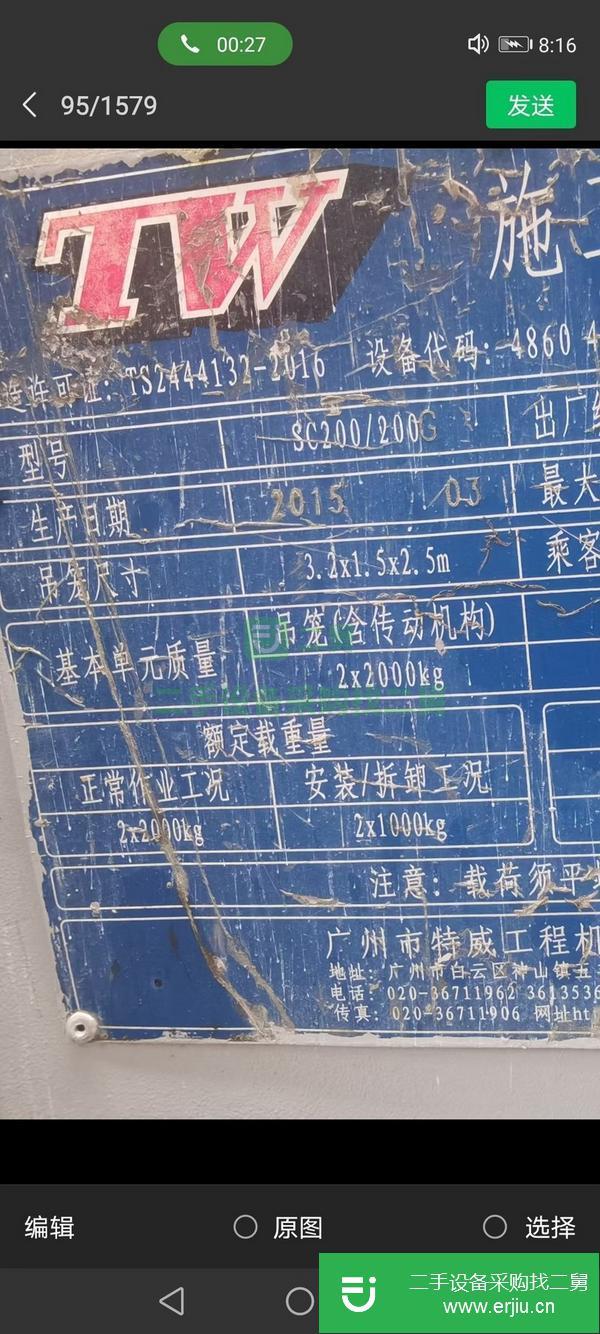 00:27
8:16
95/1579
发送
TW
施工
造许可证: TS2444132-2016 设备代码: 4860 4
型号 SC200/200G 出厂
生产日期 2015 03 最大
吊笼尺寸 3.2x1.5x2.5m 乘客
基本单元质量 吊笼(含传动机构)
2x2000kg
二手设备采购找二舅
额定载重量
正常作业工况 安装/拆卸工况
2x2000kg 2x1000kg
注意: 载荷须平
广州市特威工程机
地址: 广州市白云区神山镇五
电话: 020-36711962 3613536
传真: 020-36711906 网址htt
编辑 原图 选择
二手设备采购找二舅
www.erjiu.cn